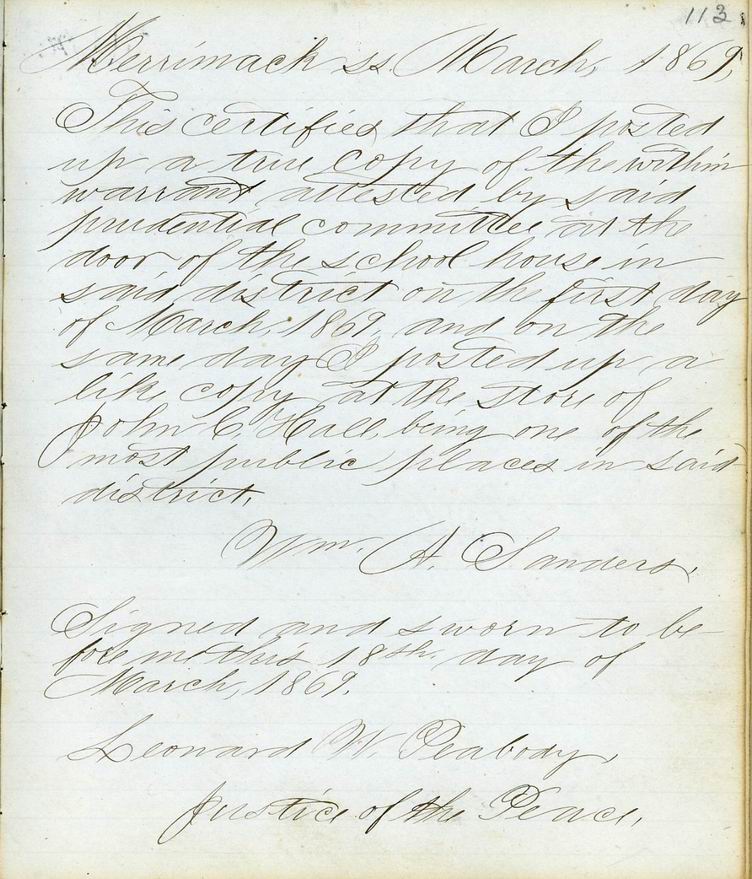 113
Merrimack ss. March, 1869,
This certifies that I posted
up a true copy of the within
warrant attested by said
prudential committee at the
door of the school house in
said district on the first day
of March, 1869, and on the
same day I posted up a
like copy at the store of
John C. Hall, being one of the
most public places in said
district.
Wm. A. Sanders.
Signed and sworn to be-
fore me this 18th. day of
March, 1869.
Leonard W. Peabody,
Justice of the Peace.